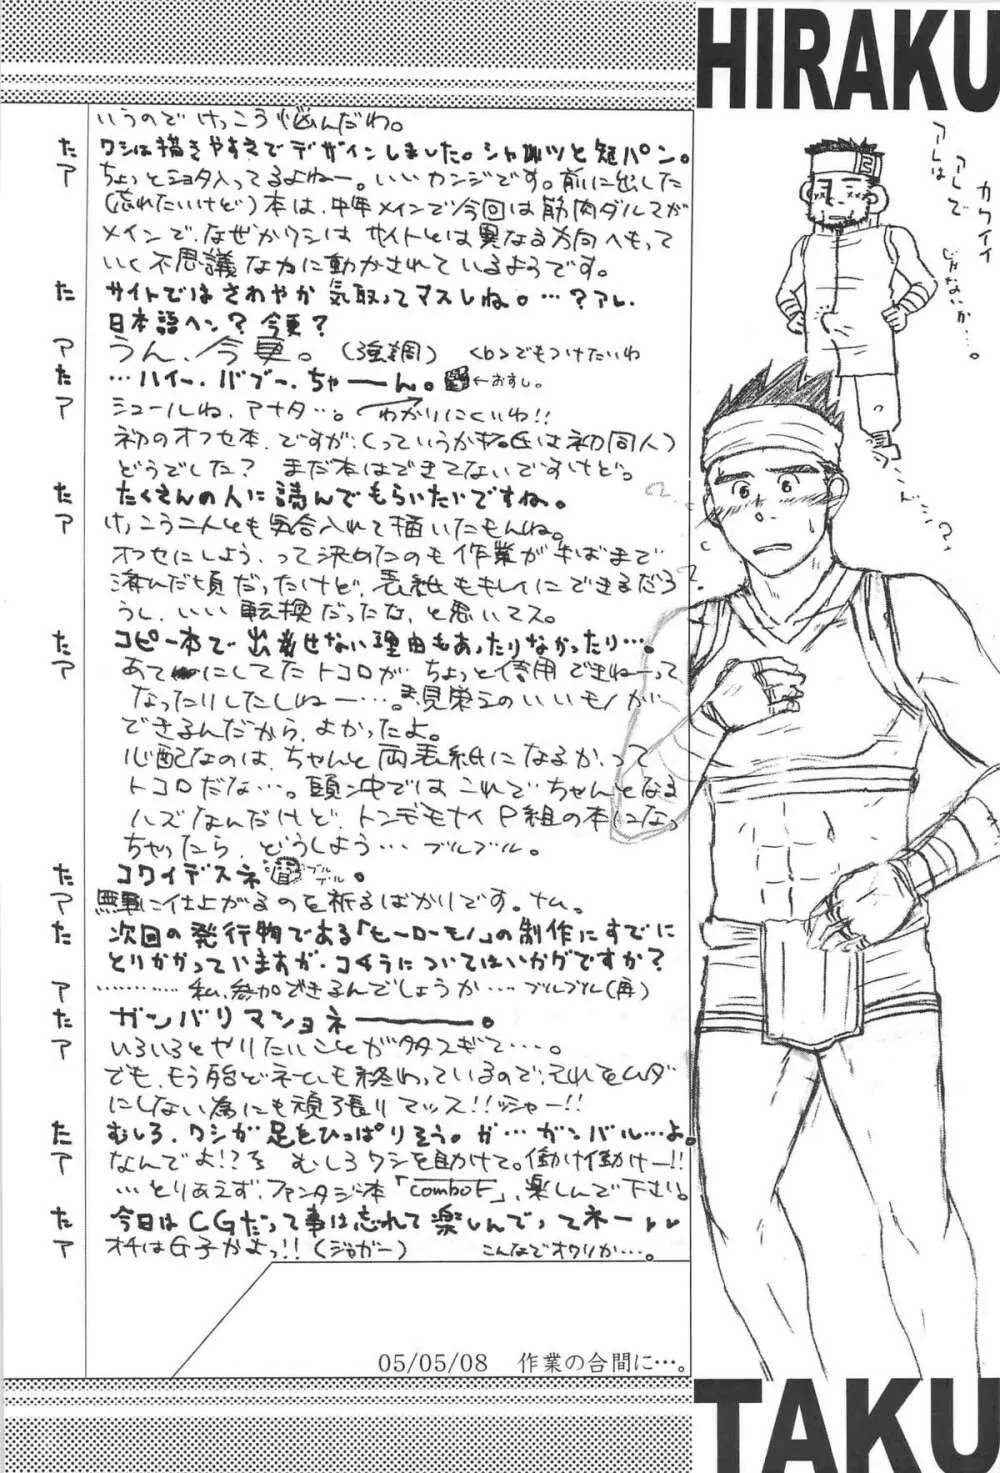 HIRAKU
いうのでけっこう悩んだわ。
た ワシは描きやすさでデザインしました。シャツと短パン。
ア ちょっとショタ入ってるよねー。いいカンジです。前に出した
(忘れたいけど)本は、中年メインで今回は筋肉ダルマが
メインで、なぜかワシはサイトとは異なる方向へもって
いく不思議な力に動かされているようです。
た サイトではさわやか気取ってマスしね。…?アレ、
日本語ヘン?今更?
ア うん、今更。(強調) <b>でもつけたいわ
た …ハイー、バブー、ちゃーーん。←おすし。
ア シュールね、アナタ…。わかりにくいわ!!
初のオフセ本、ですが、(っていうか 氏は初同人)
どうでした? まだ本はできてないですけど。
た たくさんの人に読んでもらいたいですね。
ア けっこう二人とも気合入れて描いたもんね。
オフセにしよう、って決めたのも作業が半ばまで
済んだ頃だったけど、表紙もキレイにできるだろ
うし、いい転換だったな、と思いマス。
た コピー本で出せない理由もあったりなかったり…。
ア あてにしてたトコロが、ちょっと使用できねーって
なったりしたしねー…。見栄えのいいモノが
できるんだから、よかったよ。
心配なのは、ちゃんと両表紙になるか、って
トコロだな…。頭ン中ではこれでちゃんとなる
ハズなんだけど、トンデモナイP組の本になっ
ちゃったら、どうしよう…ブルブル。
た コワイデスネ ブルブル。
ア 無事に仕上がるのを祈るばかりです。ナム。
た 次回の発行物である「ヒーローモノ」の制作にすでに
とりかかっていますが、コチラについてはいかがですか?
ア …………私、参加できるんでしょうか…ブルブル(再)
た ガンバリマショネーーー。
ア いろいろとやりたいことが多スギて…。
でも、もう殆どネームも終わっているので、それをムダ
にしない為にも頑張りマッス!!ッシャー!!
た むしろ、ワシが足をひっぱりそう。が…ガンバル…よ。
ア なんでよ!?むしろワシを助けて。働け働けー!!
…とりあえず、ファンタジー本「combo F」、楽しんで下さい。
た 今日はCGだって事は忘れて楽しんでってネー
ア オチはG子かよっ!!(ジョガー) こんなでオワリか…。
05/05/08 作業の合間に…。
アレは
アレで
カワイイ
じゃないか…。
TAKU